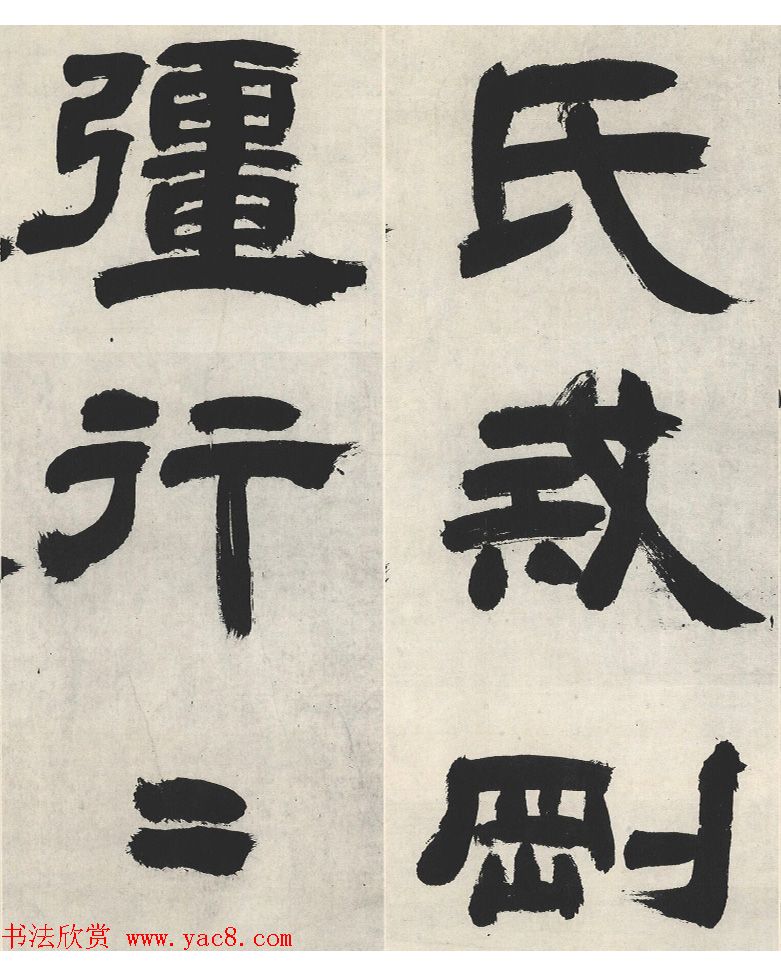 氏戒剛
彊行二
书法欣赏 www.yac8.com